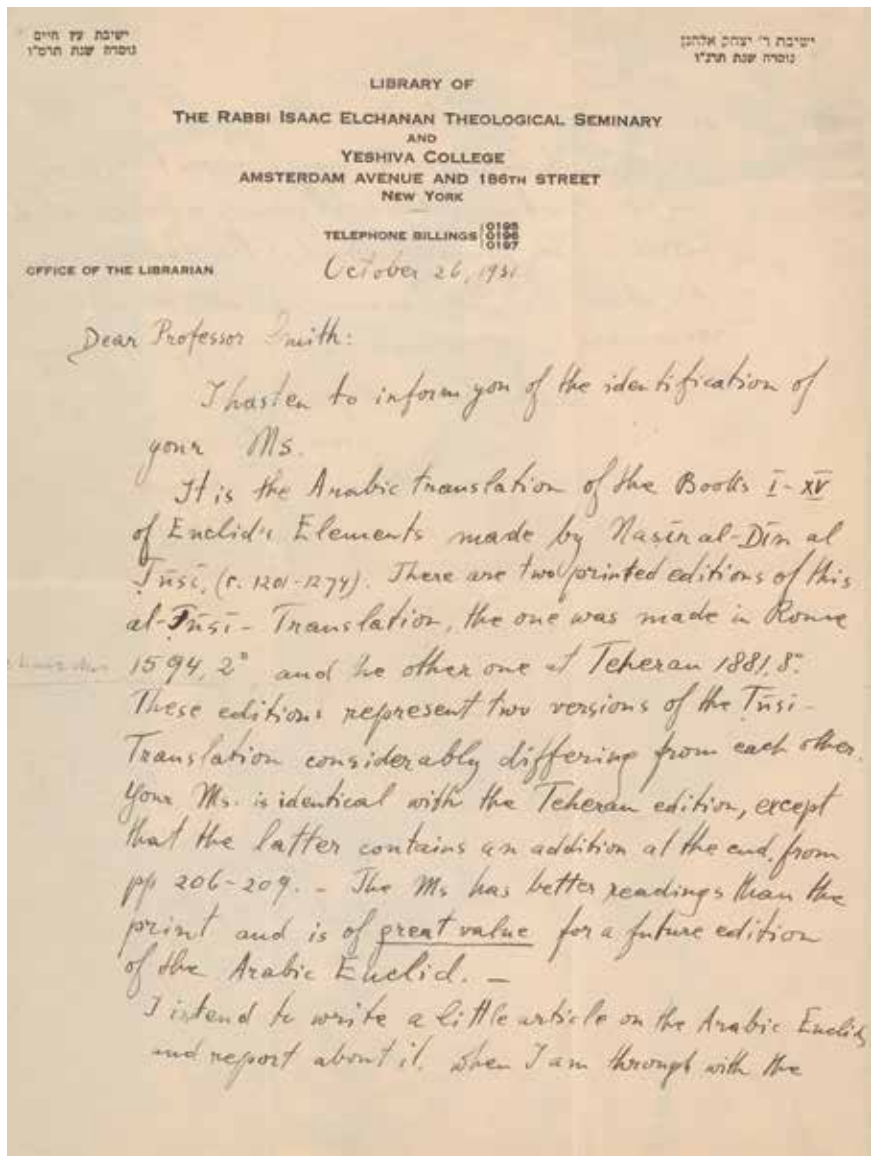 ישיבת עץ חיים
נוסדה שנת תרמ"ו
ישיבת ר' יצחק אלחנן
נוסדה שנת תרנ"ו
LIBRARY OF
THE RABBI ISAAC ELCHANAN THEOLOGICAL SEMINARY
AND
YESHIVA COLLEGE
AMSTERDAM AVENUE AND 186TH STREET
NEW YORK
TELEPHONE BILLINGS 0195 0196 0197
OFFICE OF THE LIBRARIAN
October 26, 1931
Dear Professor Smith:
I hasten to inform you of the identification of
your Ms.
It is the Arabic translation of the Books I-XV
of Euclid's Elements made by Naṣīr al-Dīn al
Ṭūsī, (r. 1201-1274). There are two printed editions of this
al-Ṭūsī-Translation, the one was made in Rome
1594, 2° and he other one at Teheran 1881, 8°.
These editions represent two versions of the Ṭūsī-
Translation considerably differing from each other.
Your Ms. is identical with the Teheran edition, except
that the latter contains an addition at the end, from
pp 206-209. - The Ms has better readings than the
print and is of great value for a future edition
of the Arabic Euclid. —
I intend to write a little article on the Arabic Euclid
and report about it, when I am through with the